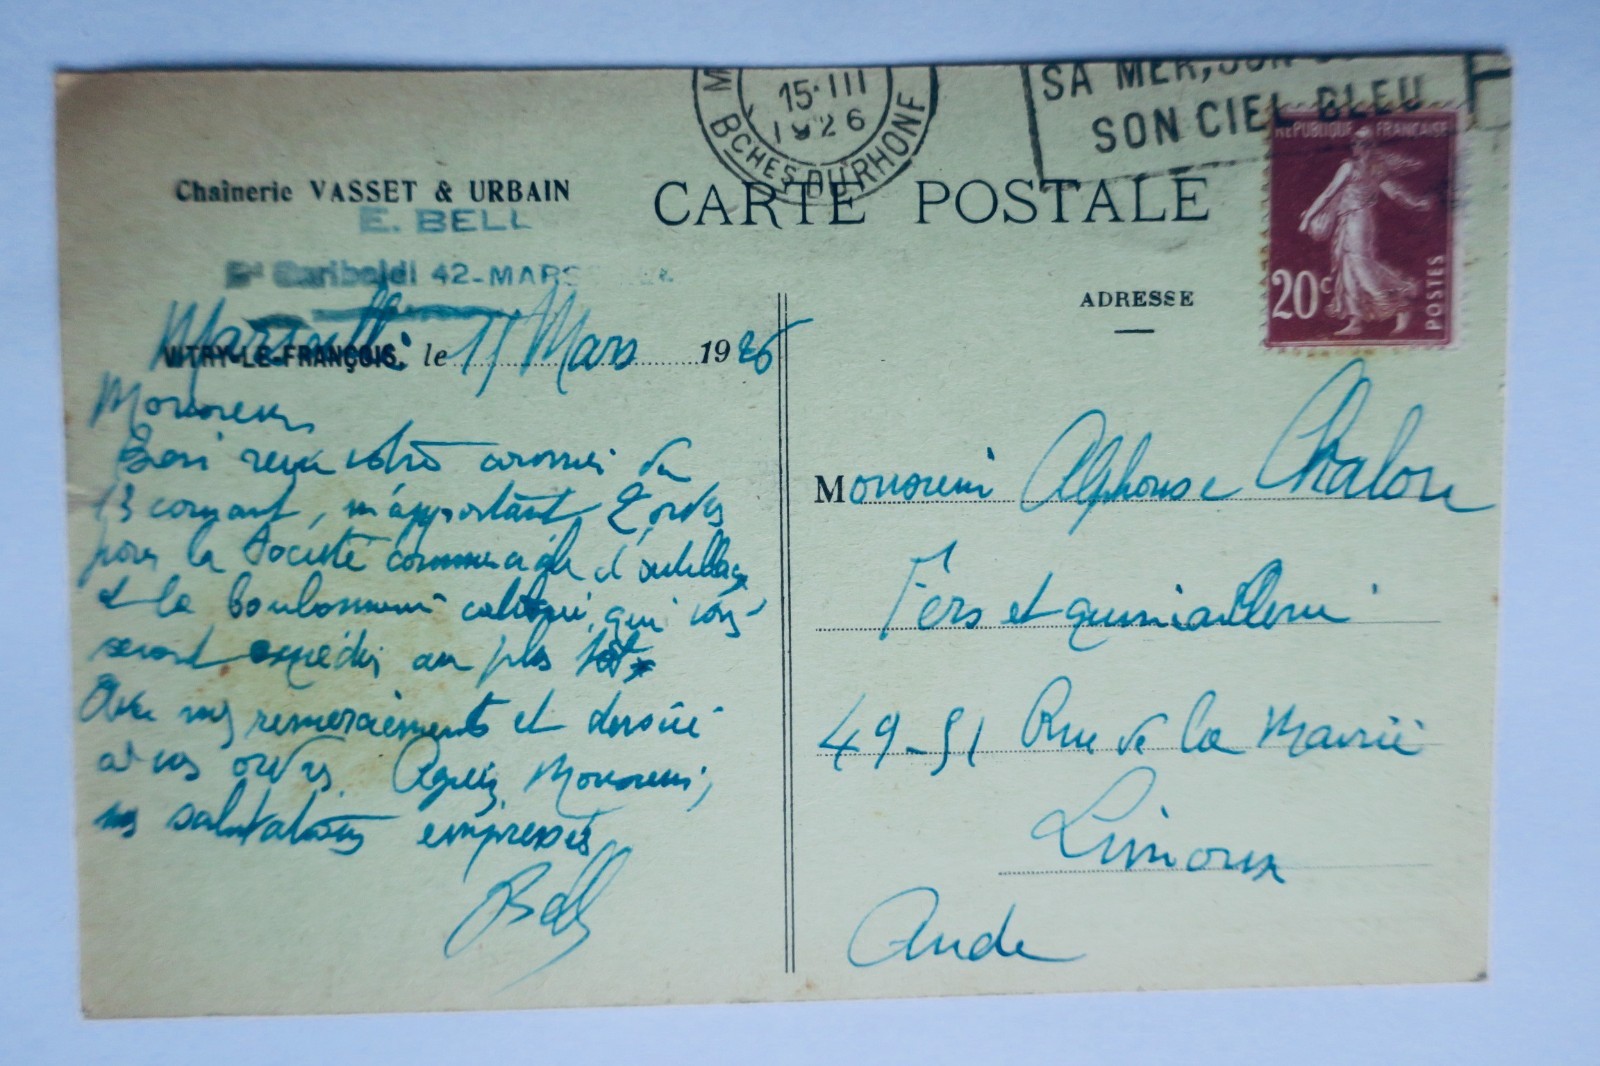 15·III
1926
BCHES DU RHONE
SA MER, SON
SON CIEL BLEU
REPUBLIQUE FRANCAISE
20c
POSTES
Chaînerie VASSET & URBAIN
E. BELL
Bd Garibaldi 42-MARS
CARTE POSTALE
ADRESSE
Marseille
VITRY-LE-FRANÇOIS, le Mars 1926
Monsieur
Bien reçu votre du
13 courant, m'apportant 2 ordres
pour la Société commerciale d'outillage
et la boulonnerie qui vous
seront expédiés au plus tôt
Avec mes remerciements et
à vos ordres. Agréez, Monsieur,
mes salutations empressées
Bell
Monsieur Alphonse Chalou
Fers et quincaillerie
49-51 Rue de la Mairie
Limoux
Aude